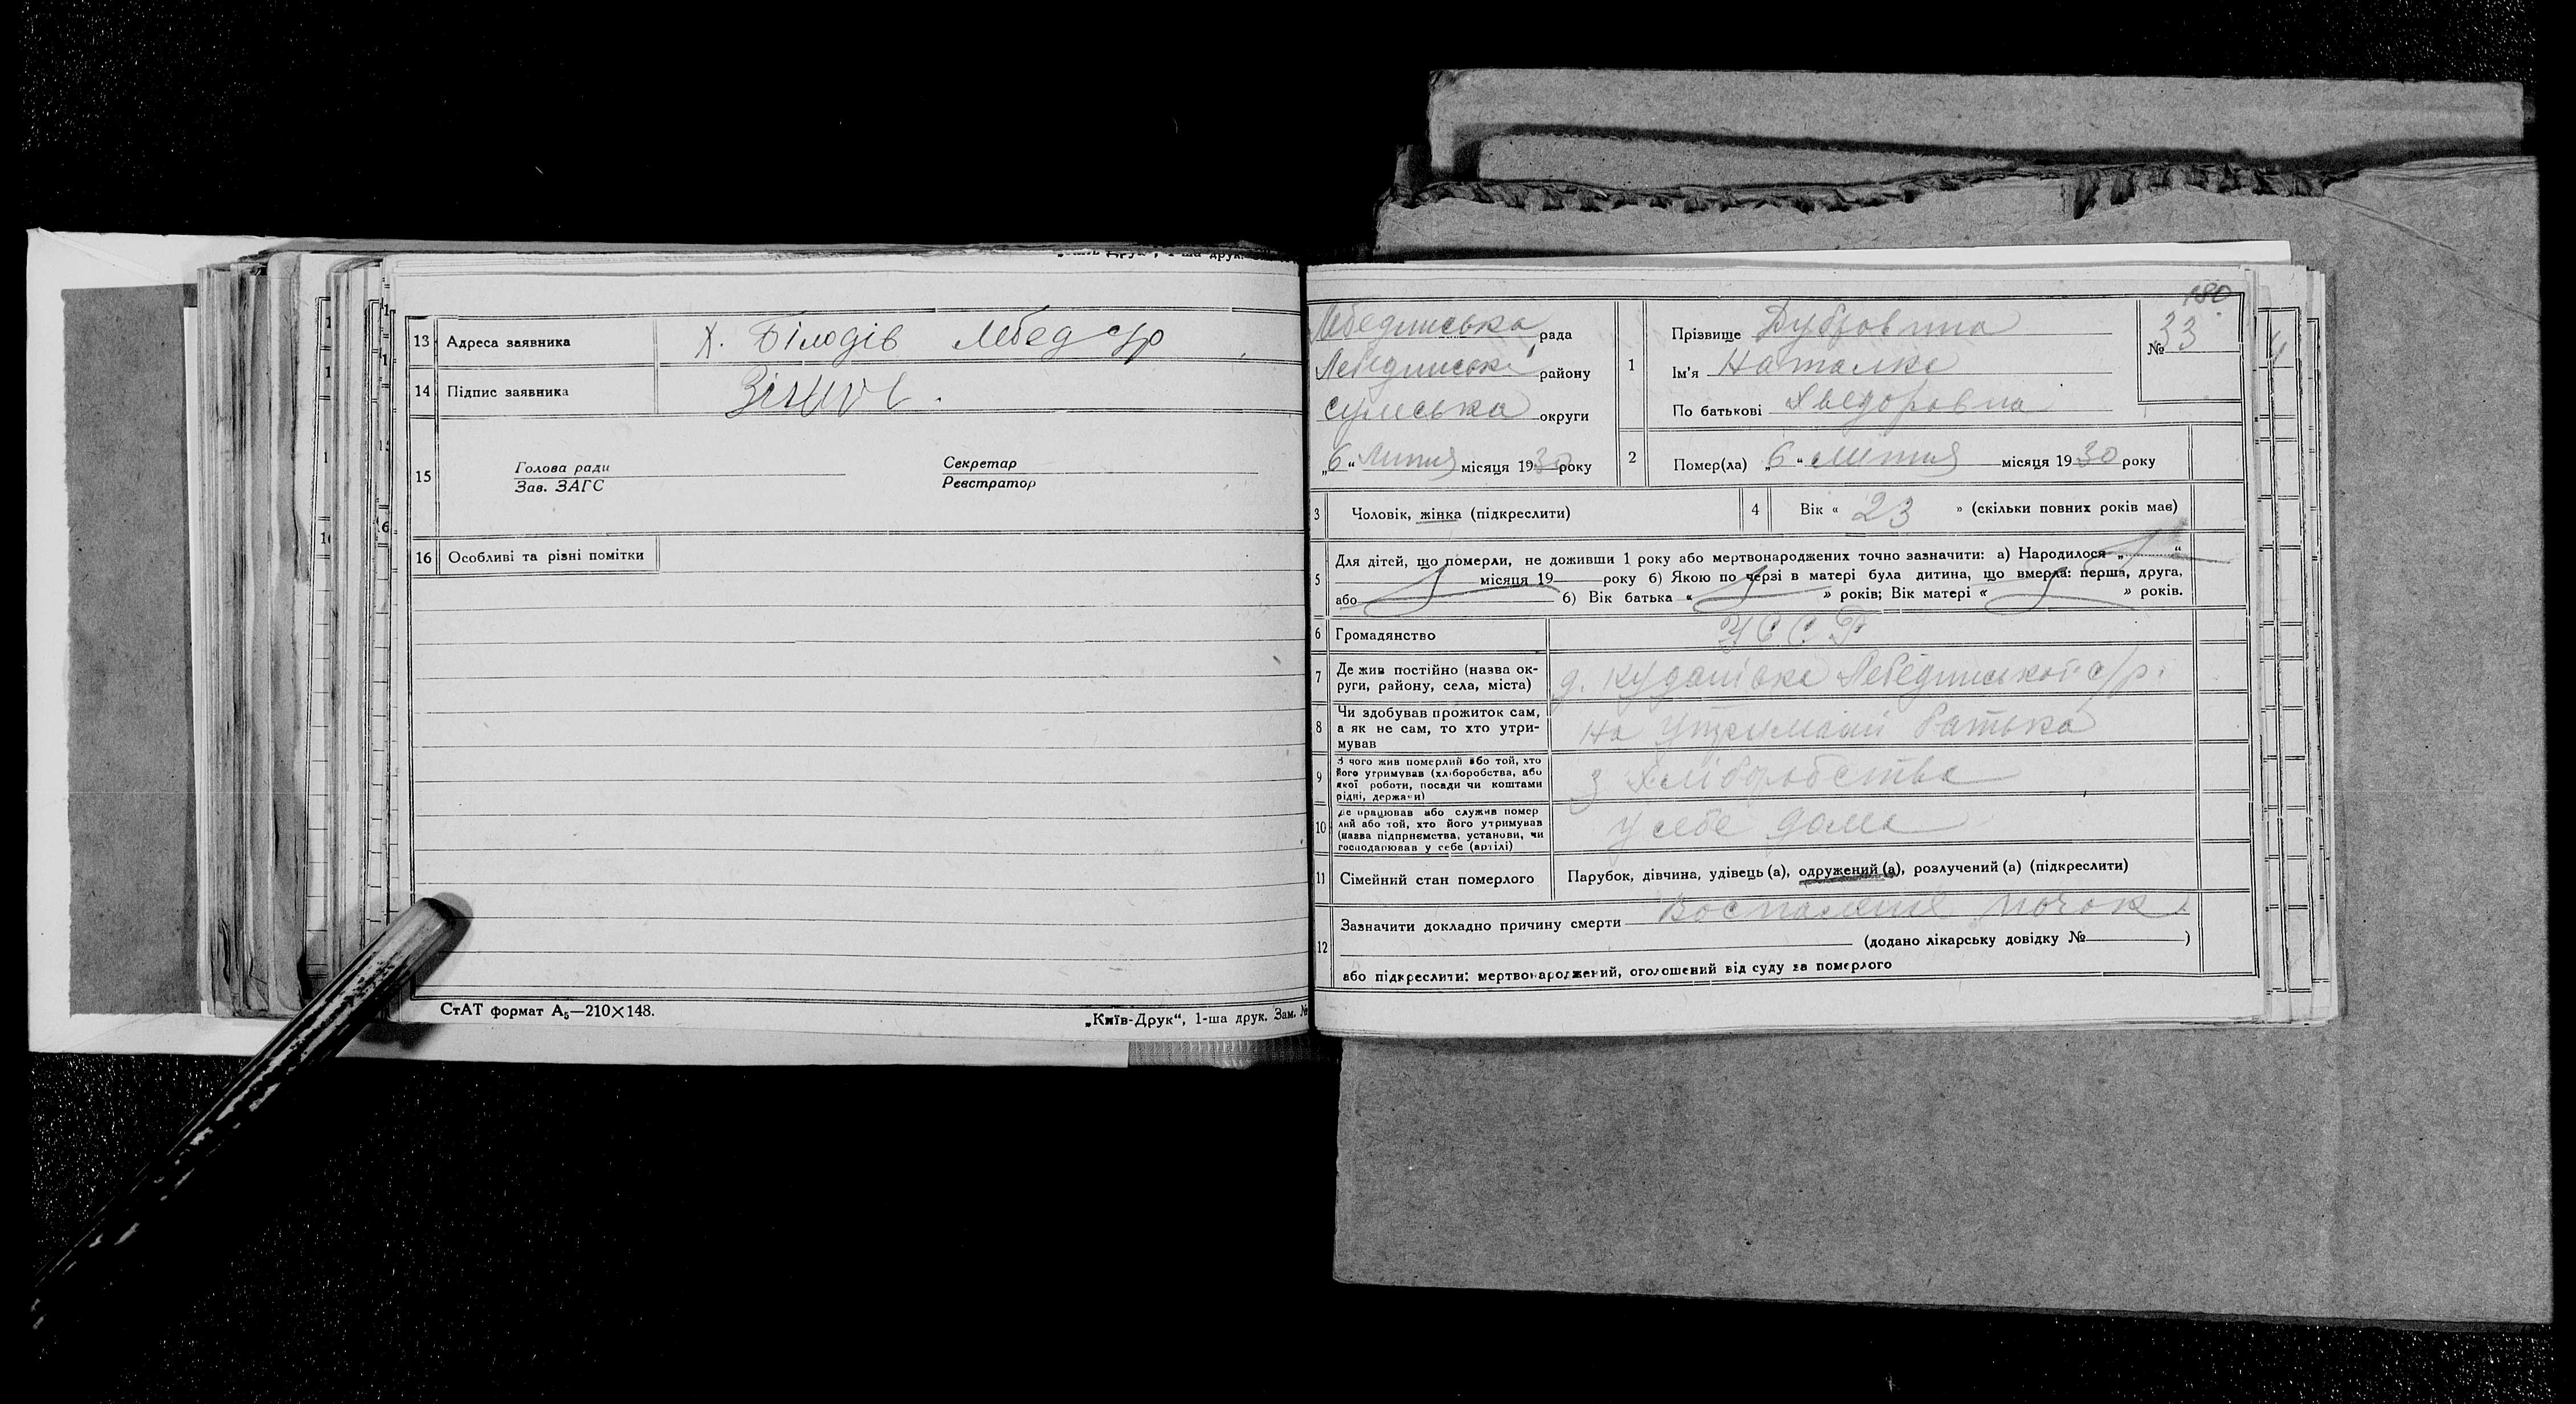 13 Адреса заявника х. Білодів Лебед с/р
14 Підпис заявника
15 Голова ради Секретар
Зав. ЗАГС Реєстратор
16 Особливі та різні помітки
СтАТ формат А₅—210×148.
„Київ-Друк“, 1-ша друк. Зам. №
180
Лебединська рада
Лебединські району
сумська округи
„6“ Липня місяця 1930 року
1 Прізвище Дубровина
Ім'я Наталка
По батькові Хведоровна
№ 33
2 Помер(ла) „6“ липня місяця 1930 року
3 Чоловік, жінка (підкреслити)
4 Вік « 23 » (скільки повних років має)
5 Для дітей, що померли, не доживши 1 року або мертвонароджених точно зазначити: а) Народилося „ “
місяця 19 року б) Якою по черзі в матері була дитина, що вмерла: перша, друга,
або б) Вік батька « » років; Вік матері « » років.
6 Громадянство УССР
7 Де жив постійно (назва ок-
руги, району, села, міста) Лебединської с/р.
8 Чи здобував прожиток сам,
а як не сам, то хто утри-
мував на батька
9 З чого жив померлий або той, хто
його утримував (хліборобства, або
якої роботи, посади чи коштами
рідні, держави) з Хліборобства
10 Де працював або служив помер
лий або той, хто його утримував
(назва підприємства, установи, чи
господарював у себе (артілі) у себе дома
11 Сімейний стан померлого Парубок, дівчина, удівець (а), одружений (а), розлучений (а) (підкреслити)
12 Зазначити докладно причину смерти Воспаленія почок
(додано лікарську довідку № )
або підкреслити: мертвонароджений, оголошений від суду за померлого